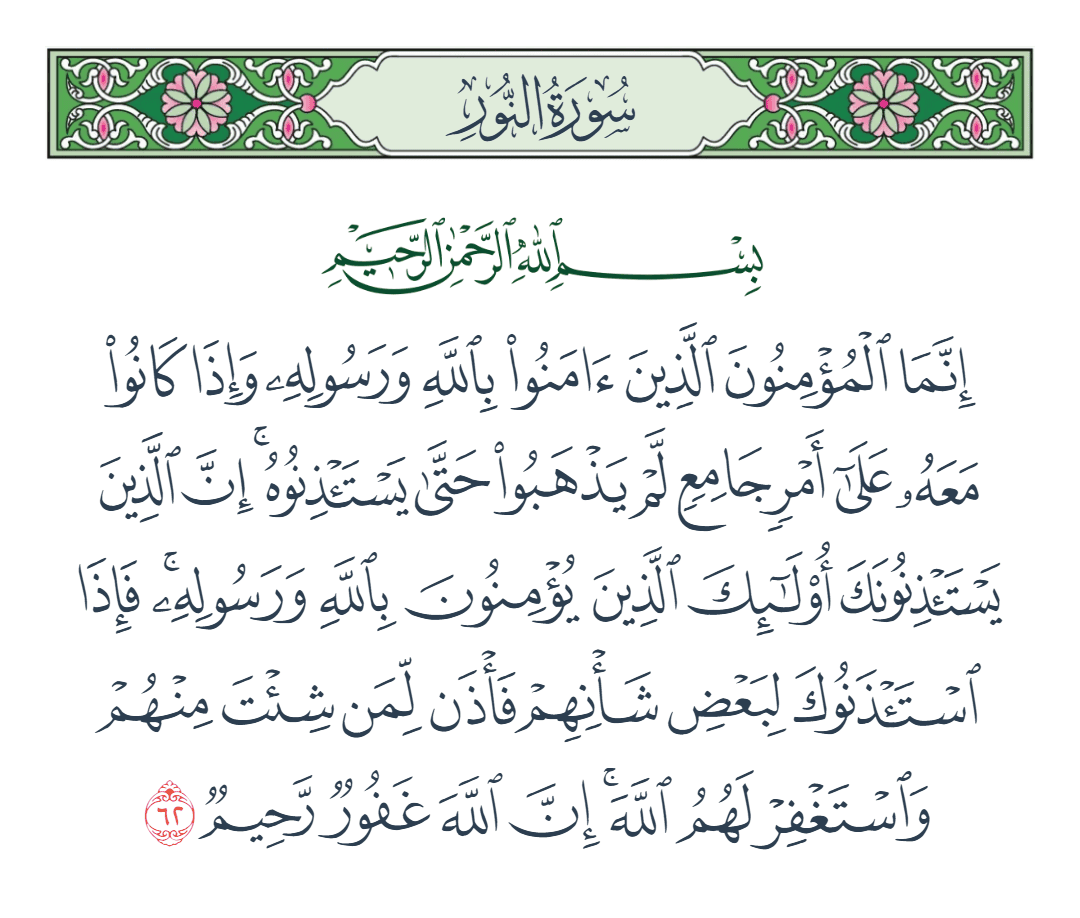 سُورَةُ النُّورِ
بِسْمِ ٱللَّهِ ٱلرَّحْمَٰنِ ٱلرَّحِيمِ
إِنَّمَا ٱلْمُؤْمِنُونَ ٱلَّذِينَ ءَامَنُوا۟ بِٱللَّهِ وَرَسُولِهِۦ وَإِذَا كَانُوا۟
مَعَهُۥ عَلَىٰٓ أَمْرٍ جَامِعٍ لَّمْ يَذْهَبُوا۟ حَتَّىٰ يَسْتَـْٔذِنُوهُ ۚ إِنَّ ٱلَّذِينَ
يَسْتَـْٔذِنُونَكَ أُو۟لَـٰٓئِكَ ٱلَّذِينَ يُؤْمِنُونَ بِٱللَّهِ وَرَسُولِهِۦ ۚ فَإِذَا
ٱسْتَـْٔذَنُوكَ لِبَعْضِ شَأْنِهِمْ فَأْذَن لِّمَن شِئْتَ مِنْهُمْ
وَٱسْتَغْفِرْ لَهُمُ ٱللَّهَ ۚ إِنَّ ٱللَّهَ غَفُورٌ رَّحِيمٌ ٦٢